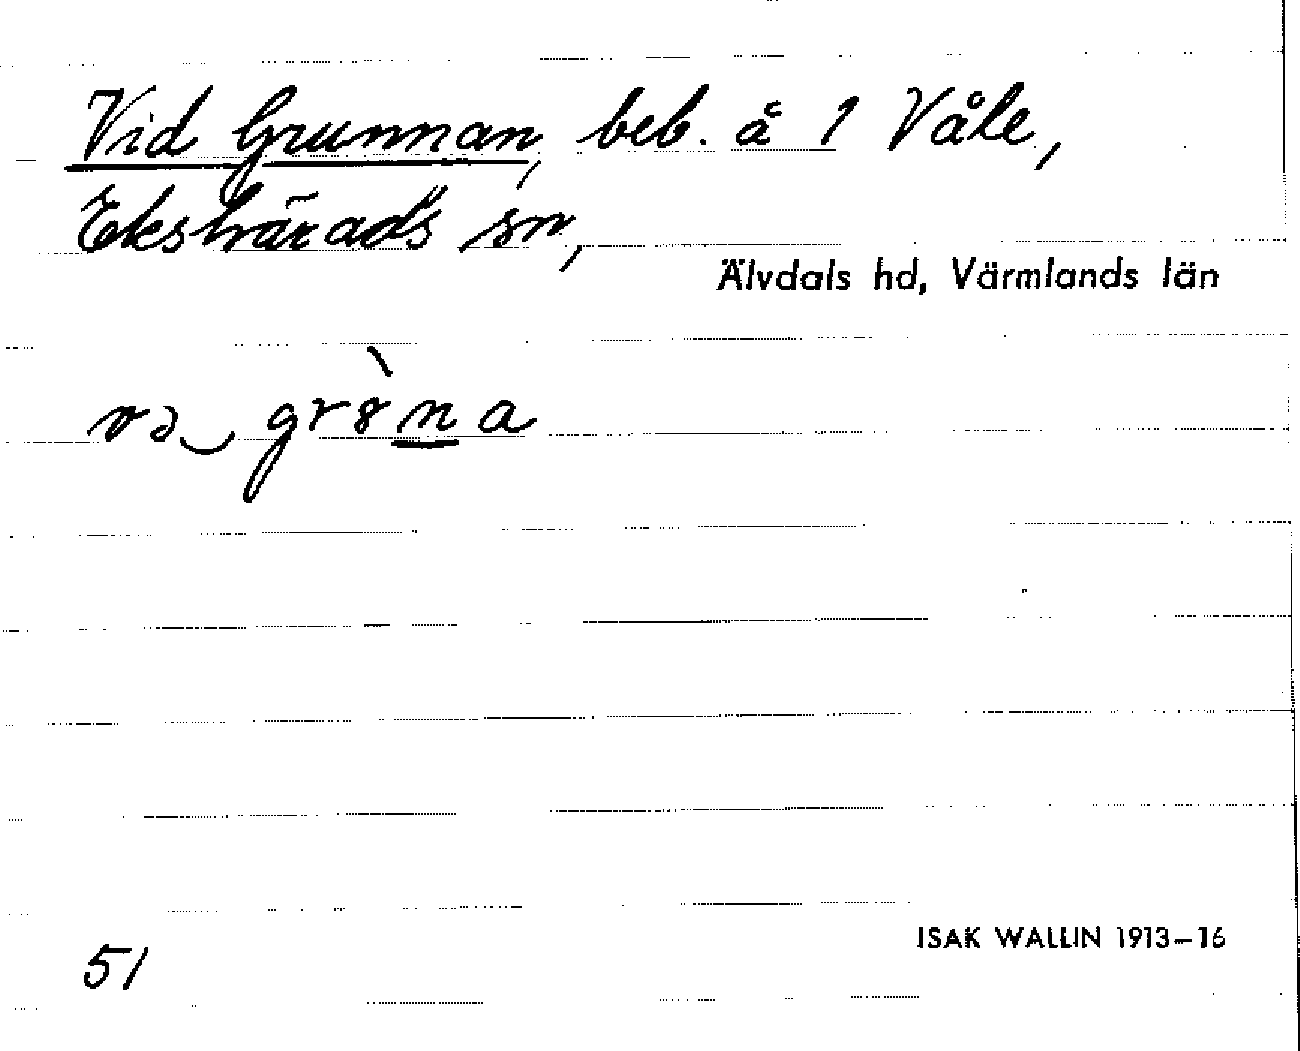 Vid Grunnan, beb. å 1 Våle,
Ekshärads sn,
Älvdals hd, Värmlands län
və‿gr8̀na
ISAK WALLIN 1913–16
51